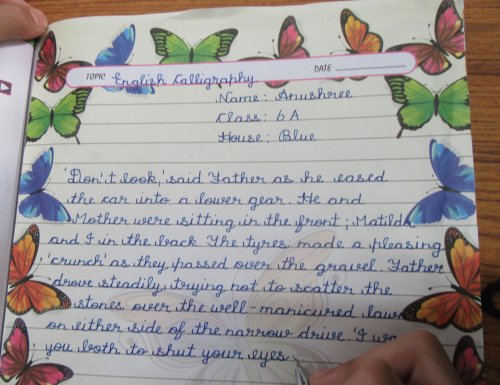 TOPIC English Calligraphy. DATE
Name: Anushree
Class: 6 A
House: Blue
'Don't look,' said Father as he eased
the car into a lower gear. He and
Mother were sitting in the front; Matilda
and I in the back. The tyres made a pleasing
'crunch' as they passed over the gravel. Father
drove steadily, trying not to scatter the
stones over the well-manicured
on either side of the narrow drive. 'I
you both to shut your eyes